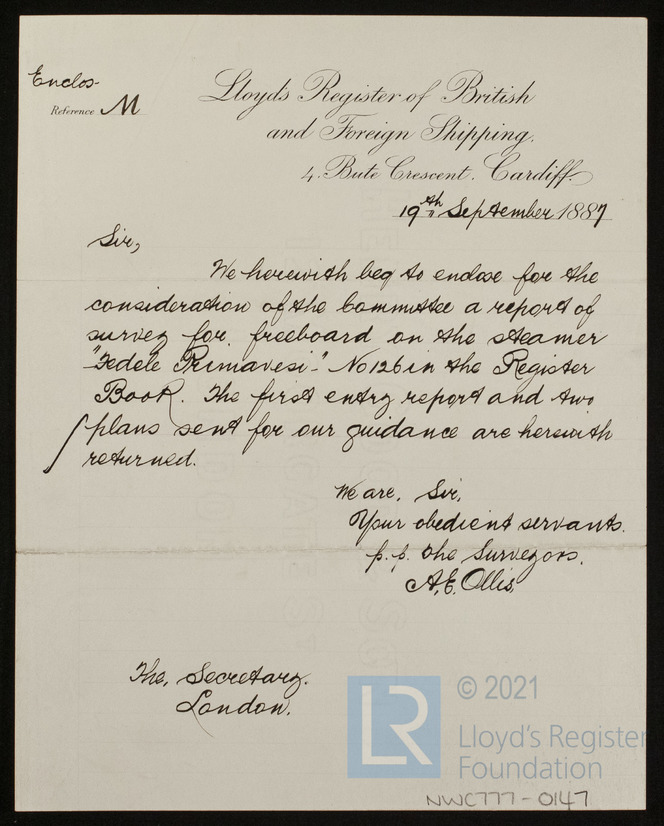 Enclos-
Reference M
Lloyd's Register of British
and Foreign Shipping.
4. Bute Crescent. Cardiff.
19th September 1887
Sir,
We herewith beg to enclose for the
consideration of the Committee a report of
survey for freeboard on the steamer
"Fedele Primavesi" No 126 in the Register
Book. The first entry report and two
plans sent for our guidance are herewith
returned.
We are, Sir,
Your obedient servants.
p.p. the Surveyors.
A.E. Ollis,
The, Secretary.
London.
LR
© 2021
Lloyd's Register
Foundation
NWC777-0147